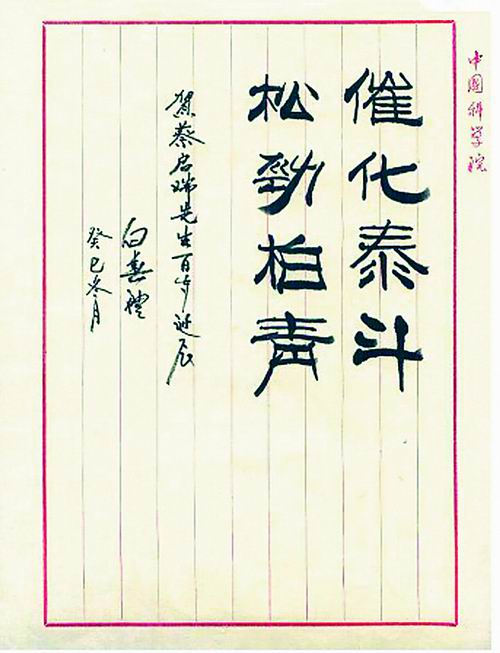 中国科学院
催化泰斗
松劲柏青
贺蔡启瑞先生百岁诞辰
白春礼
癸巳冬月